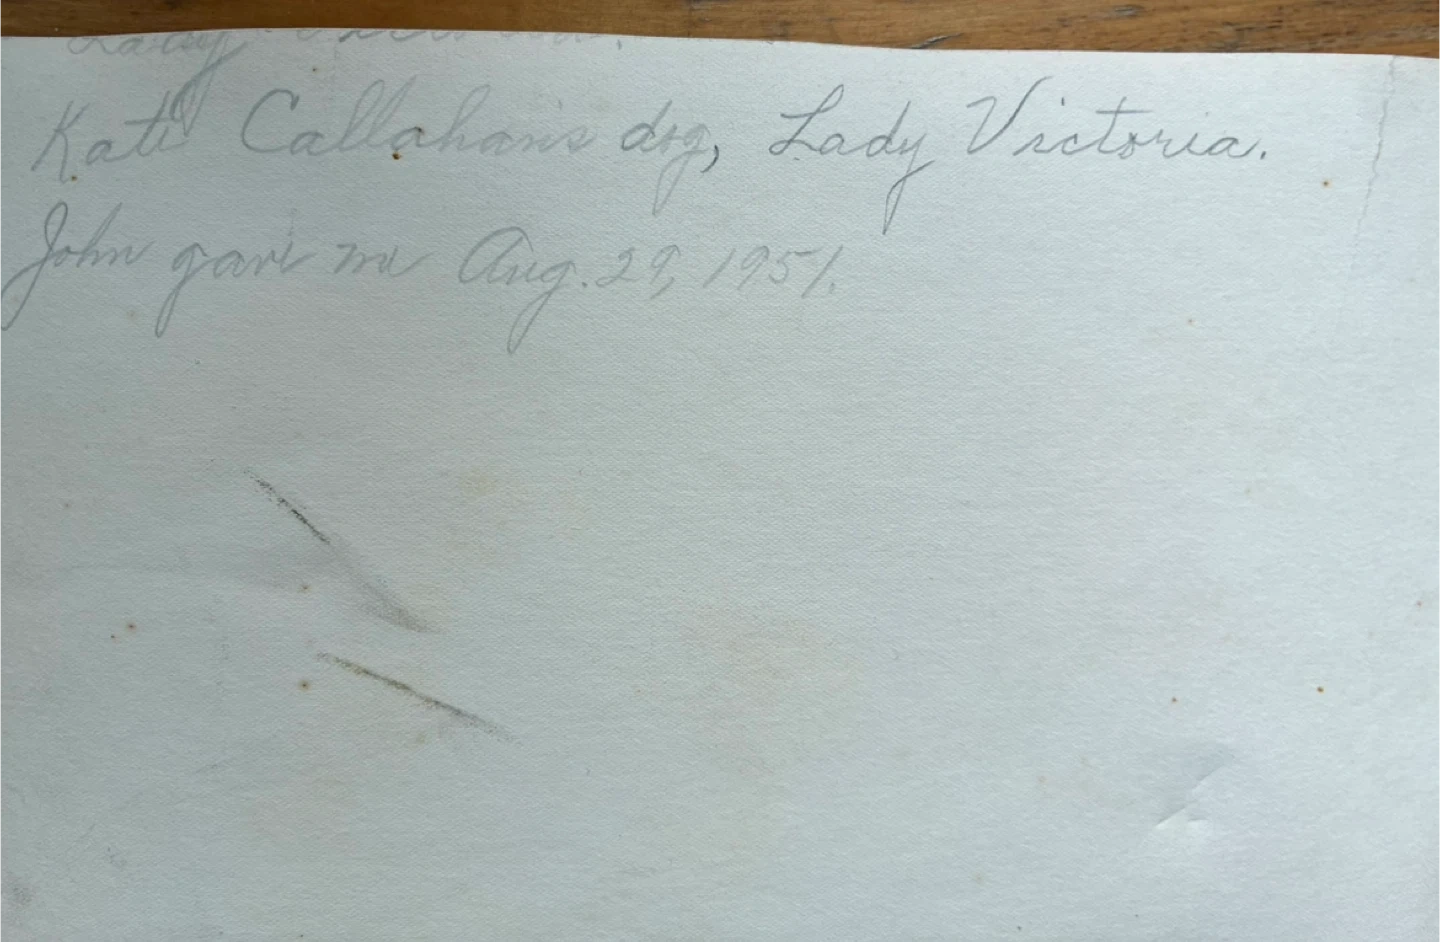 Lady
Kate Callahan's dog, Lady Victoria.
John gave me Aug. 29, 1951.